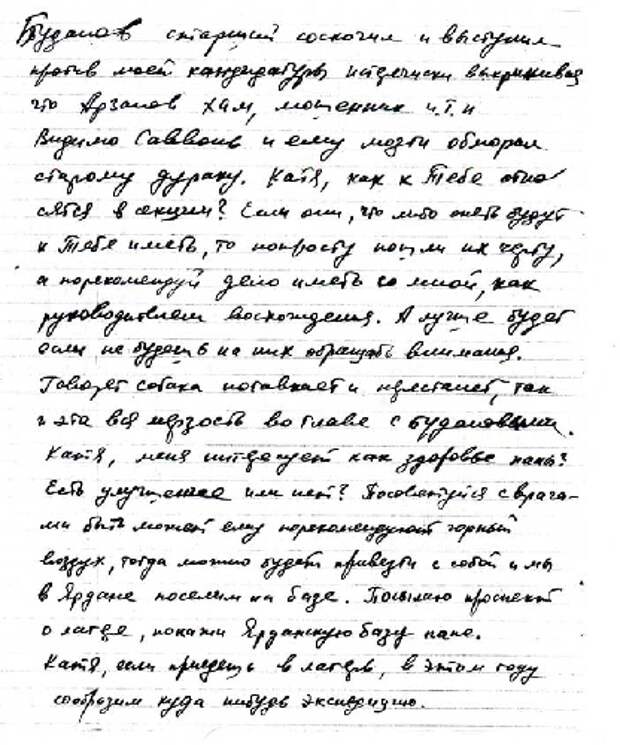 Буданов старший соскочил и выступил
против моей кандидатуры истерически выкрикивая
что Арзанов хам, мошенник и.т.п
Видимо Саввонь и ему мозги обморал
старому дураку. Катя, как к Тебе отно
сятся в секции? Если они, что либо опеть будут
к Тебе иметь, то попросту пошли их черту,
а порекомендуй дело иметь со мной, как
руководителем восхождения. А лучше будет
если не будешь на них обращать внимания.
Говорет собака потавкает и перестанет, так
и эта вся мерзость во главе с Будановыми.
Катя, меня интересует как здоровье папы?
Есть улучшение или нет? Посоветуйся с врача-
ми быть может ему порекомендуют горный
воздух, тогда можно будет привезти с собой и мы
в Ярдане поселим на базе. Посылаю проспект
о лагере, покажи Ярданскую базу папе.
Катя, если приедешь в лагерь, в этом году
сообразим куда нибудь экспедицию.